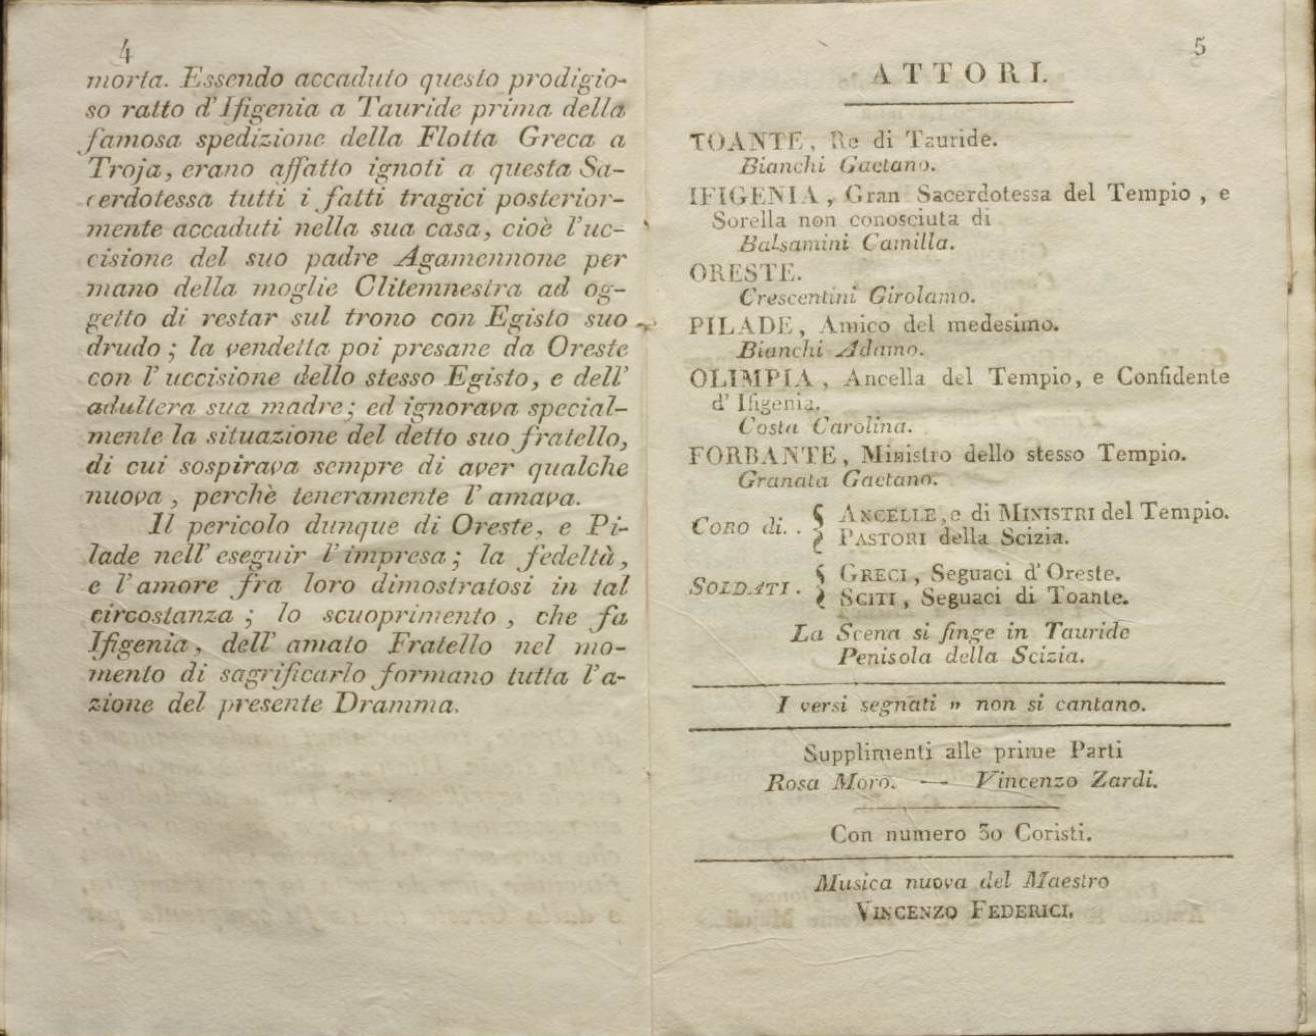 4
morta. Essendo accaduto questo prodigio-
so ratto d'Ifigenia a Tauride prima della
famosa spedizione della Flotta Greca a
Troja, erano affatto ignoti a questa Sa-
cerdotessa tutti i fatti tragici posterior-
mente accaduti nella sua casa, cioè l'uc-
cisione del suo padre Agamennone per
mano della moglie Clitemnestra ad og-
getto di restar sul trono con Egisto suo
drudo ; la vendetta poi presane da Oreste
con l'uccisione dello stesso Egisto, e dell'
adultera sua madre ; ed ignorava special-
mente la situazione del detto suo fratello,
di cui sospirava sempre di aver qualche
nuova , perchè teneramente l'amava.
Il pericolo dunque di Oreste, e Pi-
lade nell'eseguir l'impresa ; la fedeltà,
e l'amore fra loro dimostratosi in tal
circostanza ; lo scuoprimento , che fa
Ifigenia, dell'amato Fratello nel mo-
mento di sagrificarlo formano tutta l'a-
zione del presente Dramma.
5
ATTORI.
TOANTE, Re di Tauride.
Bianchi Gaetano.
IFIGENIA, Gran Sacerdotessa del Tempio , e
Sorella non conosciuta di
Balsamini Camilla.
ORESTE.
Crescentini Girolamo.
PILADE, Amico del medesimo.
Bianchi Adamo.
OLIMPIA, Ancella del Tempio, e Confidente
d'Ifigenia.
Costa Carolina.
FORBANTE, Ministro dello stesso Tempio.
Granata Gaetano.
CORO di. . { ANCELLE, e di MINISTRI del Tempio.
PASTORI della Scizia.
SOLDATI . { GRECI, Seguaci d'Oreste.
SCITI, Seguaci di Toante.
La Scena si finge in Tauride
Penisola della Scizia.
I versi segnati „ non si cantano.
Supplimenti alle prime Parti
Rosa Moro. — Vincenzo Zardi.
Con numero 30 Coristi.
Musica nuova del Maestro
VINCENZO FEDERICI.